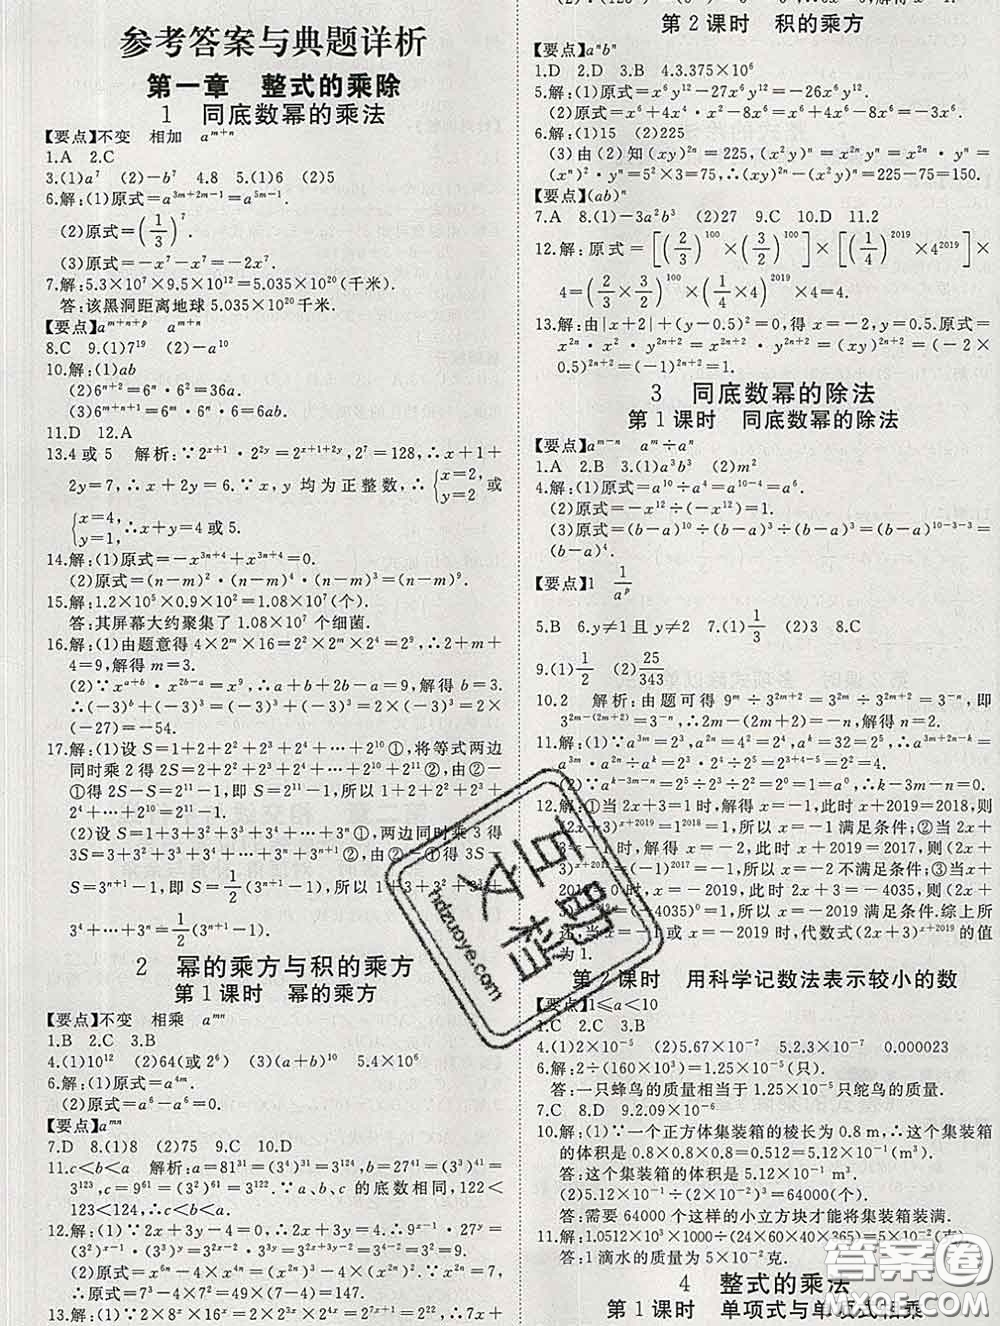 参考答案与典题详析
第一章 整式的乘除
1 同底数幂的乘法
【要点】不变 相加 a^{m+n}
1.A 2.C
3.(1)a^7 (2)-b^7 4.8 5.(1)6 (2)5
6.解:(1)原式=a^{3m+2m-1}=a^{5m-1}.
(2)原式=(1/3)^7.
(3)原式=-x^7-x^7=-2x^7.
7.解:5.3×10^7×9.5×10^{12}=5.035×10^{20}(千米).
答:该黑洞距离地球 5.035×10^{20}千米.
【要点】a^{m+n+p} a^{m+n}
8.C 9.(1)7^{19} (2)-a^{10}
10.解:(1)ab
(2)6^{n+2}=6^n·6^2=36a.
(3)6^{m+n+1}=6^m·6^n·6=6ab.
11.D 12.A
13.4或5 解析:∵2^{x+1}·2^{2y}=2^{x+1+2y},2^7=128,∴x+1+
2y=7,∴x+2y=6.∵x,y 均为正整数,∴{x=2, y=2 或
{x=4, y=1, ∴x+y=4或5.
14.解:(1)原式=-x^{3n+4}+x^{3n+4}=0.
(2)原式=(n-m)^2·(n-m)^4·(n-m)^3=(n-m)^9.
15.解:1.2×10^5×0.9×10^2=1.08×10^7(个).
答:其屏幕大约聚集了 1.08×10^7 个细菌.
16.解:(1)由题意得 4×2^m×16=2^2×2^m×2^4=2^9,∴2+m+
4=9,解得 m=3.
(2)∵x^{a+b}·x^{2b-a}=x^9,∴a+b+2b-a=9,解得 b=3.
∴(-3)^b+(-3)^3=(-3)^3+(-3)^3=2×(-3)^3=
2×(-27)=-54.
17.解:(1)设 S=1+2+2^2+2^3+2^4+…+2^{10}①,将等式两边
同时乘 2 得 2S=2+2^2+2^3+2^4+2^5+…+2^{11}②,由②-
①得 2S-S=2^{11}-1,即 S=2^{11}-1,所以 1+2+2^2+2^3+
2^4+…+2^{10}=2^{11}-1.
(2)设 S=1+3+3^2+3^3+3^4+…+3^n①,两边同时乘 3 得
3S=3+3^2+3^3+3^4+…+3^{n+1}②,由②-①得 3S-
S=3^{n+1}-1,即 S=1/2(3^{n+1}-1),所以 1+3+3^2+3^3+
3^4+…+3^n=1/2(3^{n+1}-1).
2 幂的乘方与积的乘方
第1课时 幂的乘方
【要点】不变 相乘 a^{mn}
1.B 2.C 3.B
4.(1)10^{12} (2)64(或2^6) (3)(a+b)^{10} 5.4×10^6
6.解:(1)原式=a^{4m}.
(2)原式=a^6-a^6=0.
【要点】a^{mn}
7.D 8.(1)8 (2)75 9.C 10.D
11.c<b<a 解析:a=81^{31}=(3^4)^{31}=3^{124},b=27^{41}=(3^3)^{41}=
3^{123},c=9^{61}=(3^2)^{61}=3^{122}.∵a、b、c 的底数相同,122<
123<124,∴c<b<a.
12.解:(1)∵2x+3y-4=0,∴2x+3y=4.∴9^{x-1}·27^y=
(3^2)^{x-1}·(3^3)^y=3^{2x-2}·3^{3y}=3^{2x+3y-2}=3^{4-2}=3^2=9.
(2)原式=x^{6n}-4x^{4n}=(x^{2n})^3-4(x^{2n})^2.∵x^{2n}=7,∴
原式=7^3-4×7^2=343-196=147.
13.解:∵2×8^x×16=2×2^{3x}×2^4=2^{1+3x+4},∴1+3x+
第2课时 积的乘方
【要点】a^nb^n
1.D 2.D 3.B 4.3.375×10^6
5.解:(1)原式=x^6y^{12}-27x^6y^{12}=-26x^6y^{12}.
(2)原式=4x^6-x^6·8x^2=4x^6-8x^8.
6.解:(1)15 (2)225
(3)由(2)知(xy)^{2n}=225,(x^2y)^n=x^{2n}·y^n=
(x^n)^2·y^n=5^2×3=75,∴(xy)^{2n}-(x^2y)^n=225-75=150.
【要点】(ab)^n
7.A 8.(1)-3a^2b^3 (2)27 9.C 10.D 11.2
12.解:原式=[(2/3)^{100}×(3/2)^{100}]×[(1/4)^{2019}×4^{2019}]×
4=(2/3×3/2)^{100}×(1/4×4)^{2019}×4=4.
13.解:由|x+2|+(y-0.5)^2=0,得 x=-2,y=0.5.原式=
x^{2n}·x^2·y^{2n+2}=x^{2n+2}·y^{2n+2}=(xy)^{2n+2}=(-2×
0.5)^{2n+2}=(-1)^{2n+2}=1.
3 同底数幂的除法
第1课时 同底数幂的除法
【要点】a^{m-n} a^m÷a^n
1.A 2.B 3.(1)a^3b^3 (2)m^2
4.解:(1)原式=a^{10}÷a^4=a^{10-4}=a^6.
(2)原式=-x^{12}÷(-x^{12})=1.
(3)原式=(b-a)^{10}÷(b-a)^3÷(b-a)^3=(b-a)^{10-3-3}=
(b-a)^4.
【要点】1 1/a^p
5.B 6.y≠1且y≠2 7.(1)1/3 (2)3 8.C
9.(1)1/2 (2)25/343
10.2 解析:由题可得 9^m÷3^{2m+2}=3^{2m}÷3^{2m+2}=3^{-n},即
3^{2m-(2m+2)}=3^{-n},∴2m-(2m+2)=-n,解得 n=2.
11.解:(1)∵a^{3m}=2^3,a^{2n}=4^2=2^4,a^k=32=2^5,∴a^{3m+2n-k}=
a^{3m}·a^{2n}÷a^k=2^3·2^4÷2^5=2^2=4.
(2)∵a^{k-3m-n}=2^5÷2^3÷2^2=1=a^0,∴k-3m-n=0.
12.解:①当 2x+3=1 时,解得 x=-1,此时 x+2019=2018,则
(2x+3)^{x+2019}=1^{2018}=1,所以 x=-1 满足条件;②当 2x+
3=-1 时,解得 x=-2,此时 x+2019=2017,则(2x+
3)^{x+2019}=(-1)^{2017}=-1,所以 x=-2 不满足条件;③当
x+2019=0 时,x=-2019,此时 2x+3=-4035,则(2x+
3)^{x+2019}=(-4035)^0=1,所以 x=-2019 满足条件.综上所
述,当 x=-1 或 x=-2019 时,代数式(2x+3)^{x+2019} 的值
为 1.
第2课时 用科学记数法表示较小的数
【要点】1≤a<10
1.C 2.C 3.B
4.(1)2×10^{-5} (2)5.67×10^{-7} 5.2.3×10^{-7} 0.000023
6.解:2÷(160×10^3)=1.25×10^{-5}(只).
答:一只蜂鸟的质量相当于 1.25×10^{-5} 只鸵鸟的质量.
7.C 8.D 9.2.09×10^{-6}
10.解:(1)∵一个正方体集装箱的棱长为 0.8 m,∴这个集装箱
的体积是 0.8×0.8×0.8=0.512=5.12×10^{-1}(m^3).
答:这个集装箱的体积是 5.12×10^{-1} m^3.
(2)5.12×10^{-1}÷(2×10^{-2})^3=64000(个).
答:需要 64000 个这样的小立方块才能将集装箱装满.
11.解:1.0512×10^3×1000÷(24×60×40×365)=5×10^{-2}(克).
答:1滴水的质量为 5×10^{-2}克.
4 整式的乘法
第1课时 单项式与单项式相乘
百文
助
hdzuoye.com
答案圈
MXQE.COM